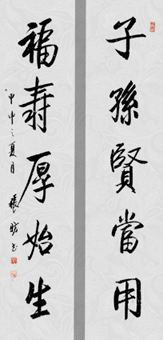 子孫賢當用
福壽厚始生
甲申之夏月 張